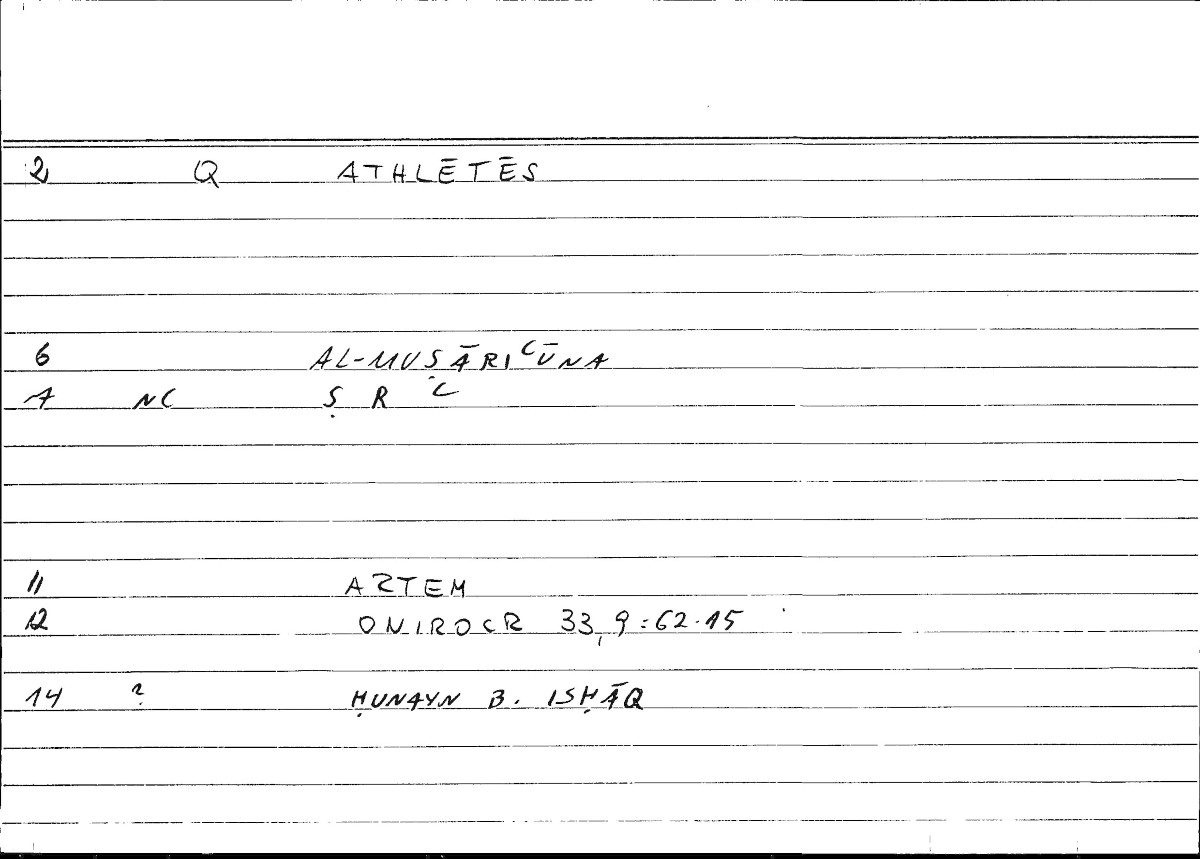 2 Q ATHLĒTĒS
6 AL-MUṢĀRIʿŪNA
7 NC Ṣ R ʿ
11 ARTEM
12 ONIROCR 33,9:62.15
14 ? ḤUNAYN B. ISḤĀQ